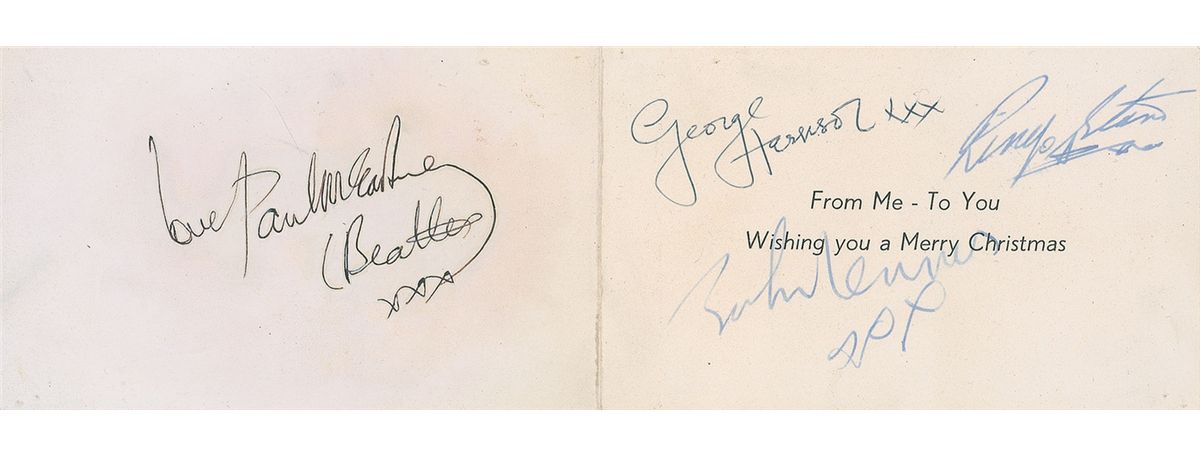 love Paul McCartney
(Beatles)
xxx
George Harrison xxx
Ringo Starr
From Me - To You
Wishing you a Merry Christmas
John Lennon
xxx